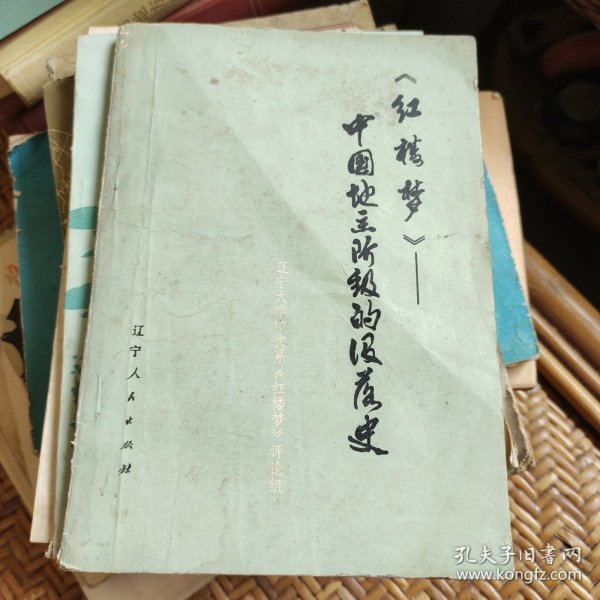 《红楼梦》——
中国地主阶级的没落史
辽宁大学中文系《红楼梦》评论组
辽宁人民出版社
孔夫子旧书网
www.kongfz.com